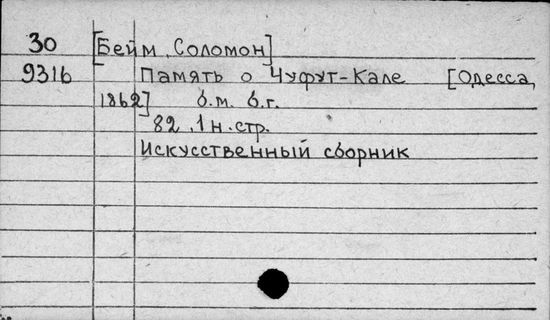 30 [Бейм, Соломон]
9316 Память о Чуфут-Кале [Одесса,
1862] б.м. б.г.
82, 1 н. стр.
Искусственный сборник